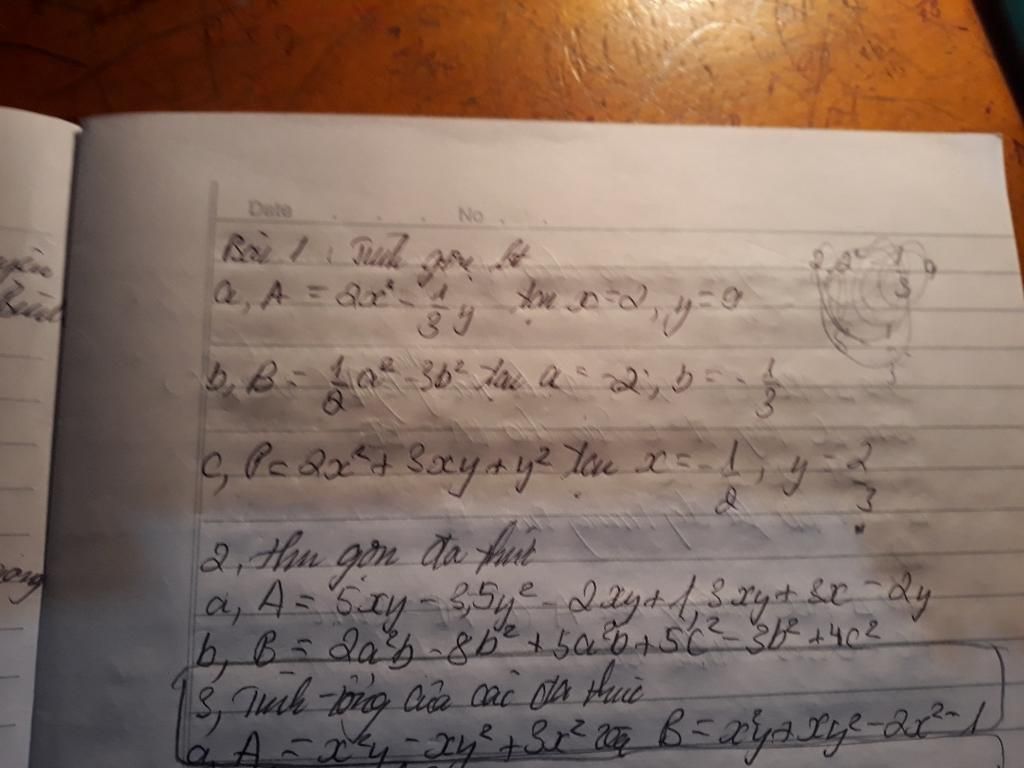 Date . . . No . .
Bài 1: Tính
a, A = 2x² - 1/3 y tại x=2, y=9
b, B = 1/2 a² - 3b² tại a = -2; b = -1/3
c, P = 2x² + 3xy + y² tại x = -1/2; y = 2/3
2, thu gọn đa thức
a, A = 5xy - 3,5y² - 2xy + 1,3xy + 3x - 2y
b, B = 2a²b - 8b² + 5a²b + 5c² - 3b² + 4c²
3, Tính tổng của các đa thức
a, A = x²y - xy² + 3x² B = x²y + xy² - 2x² - 1